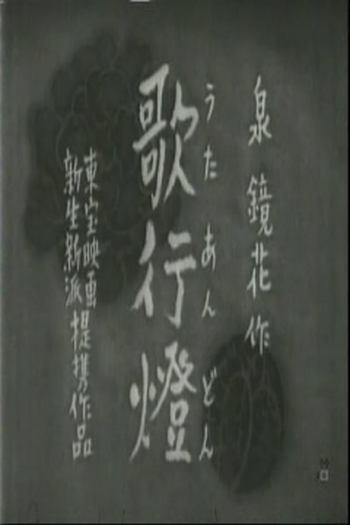 泉鏡花作
うたあんどん
歌行燈
東宝映画
新生新派
提携作品